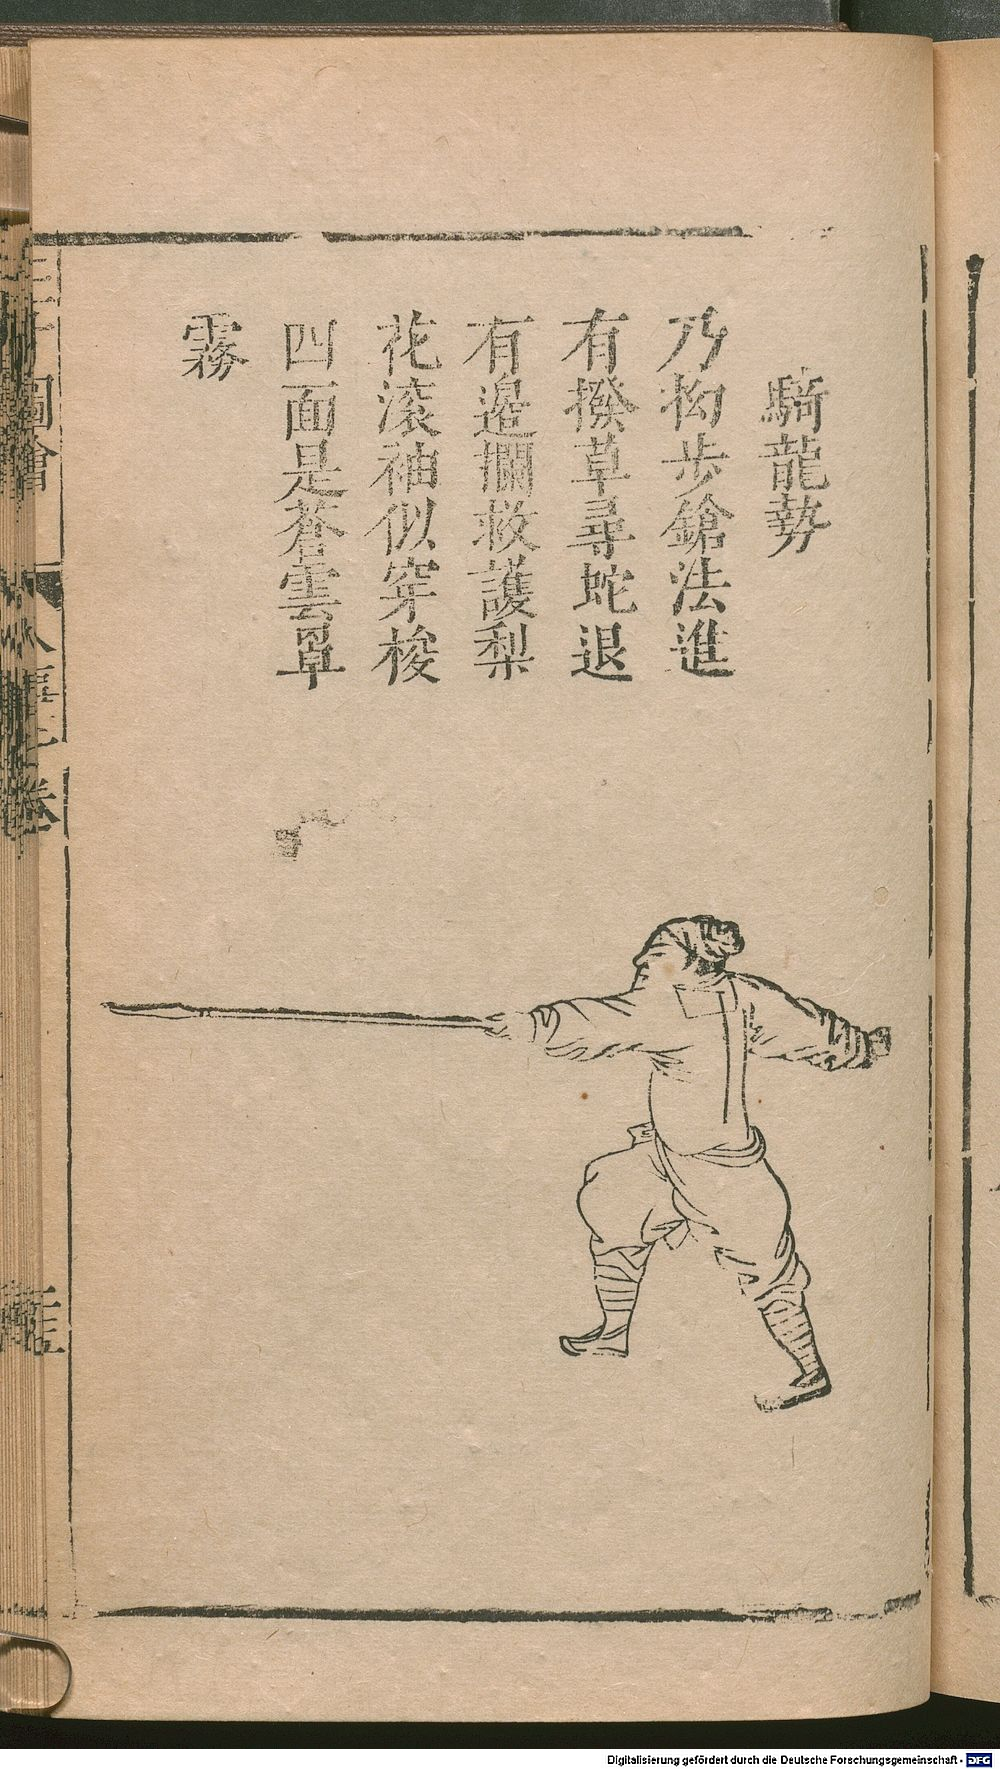 騎龍勢
乃拗步鎗法進
有撥草尋蛇退
有邊攔救護梨
花滚袖似穿梭
四面是蒼雲罩
霧
圖會
人事七卷
Digitalisierung gefördert durch die Deutsche Forschungsgemeinschaft - DFG